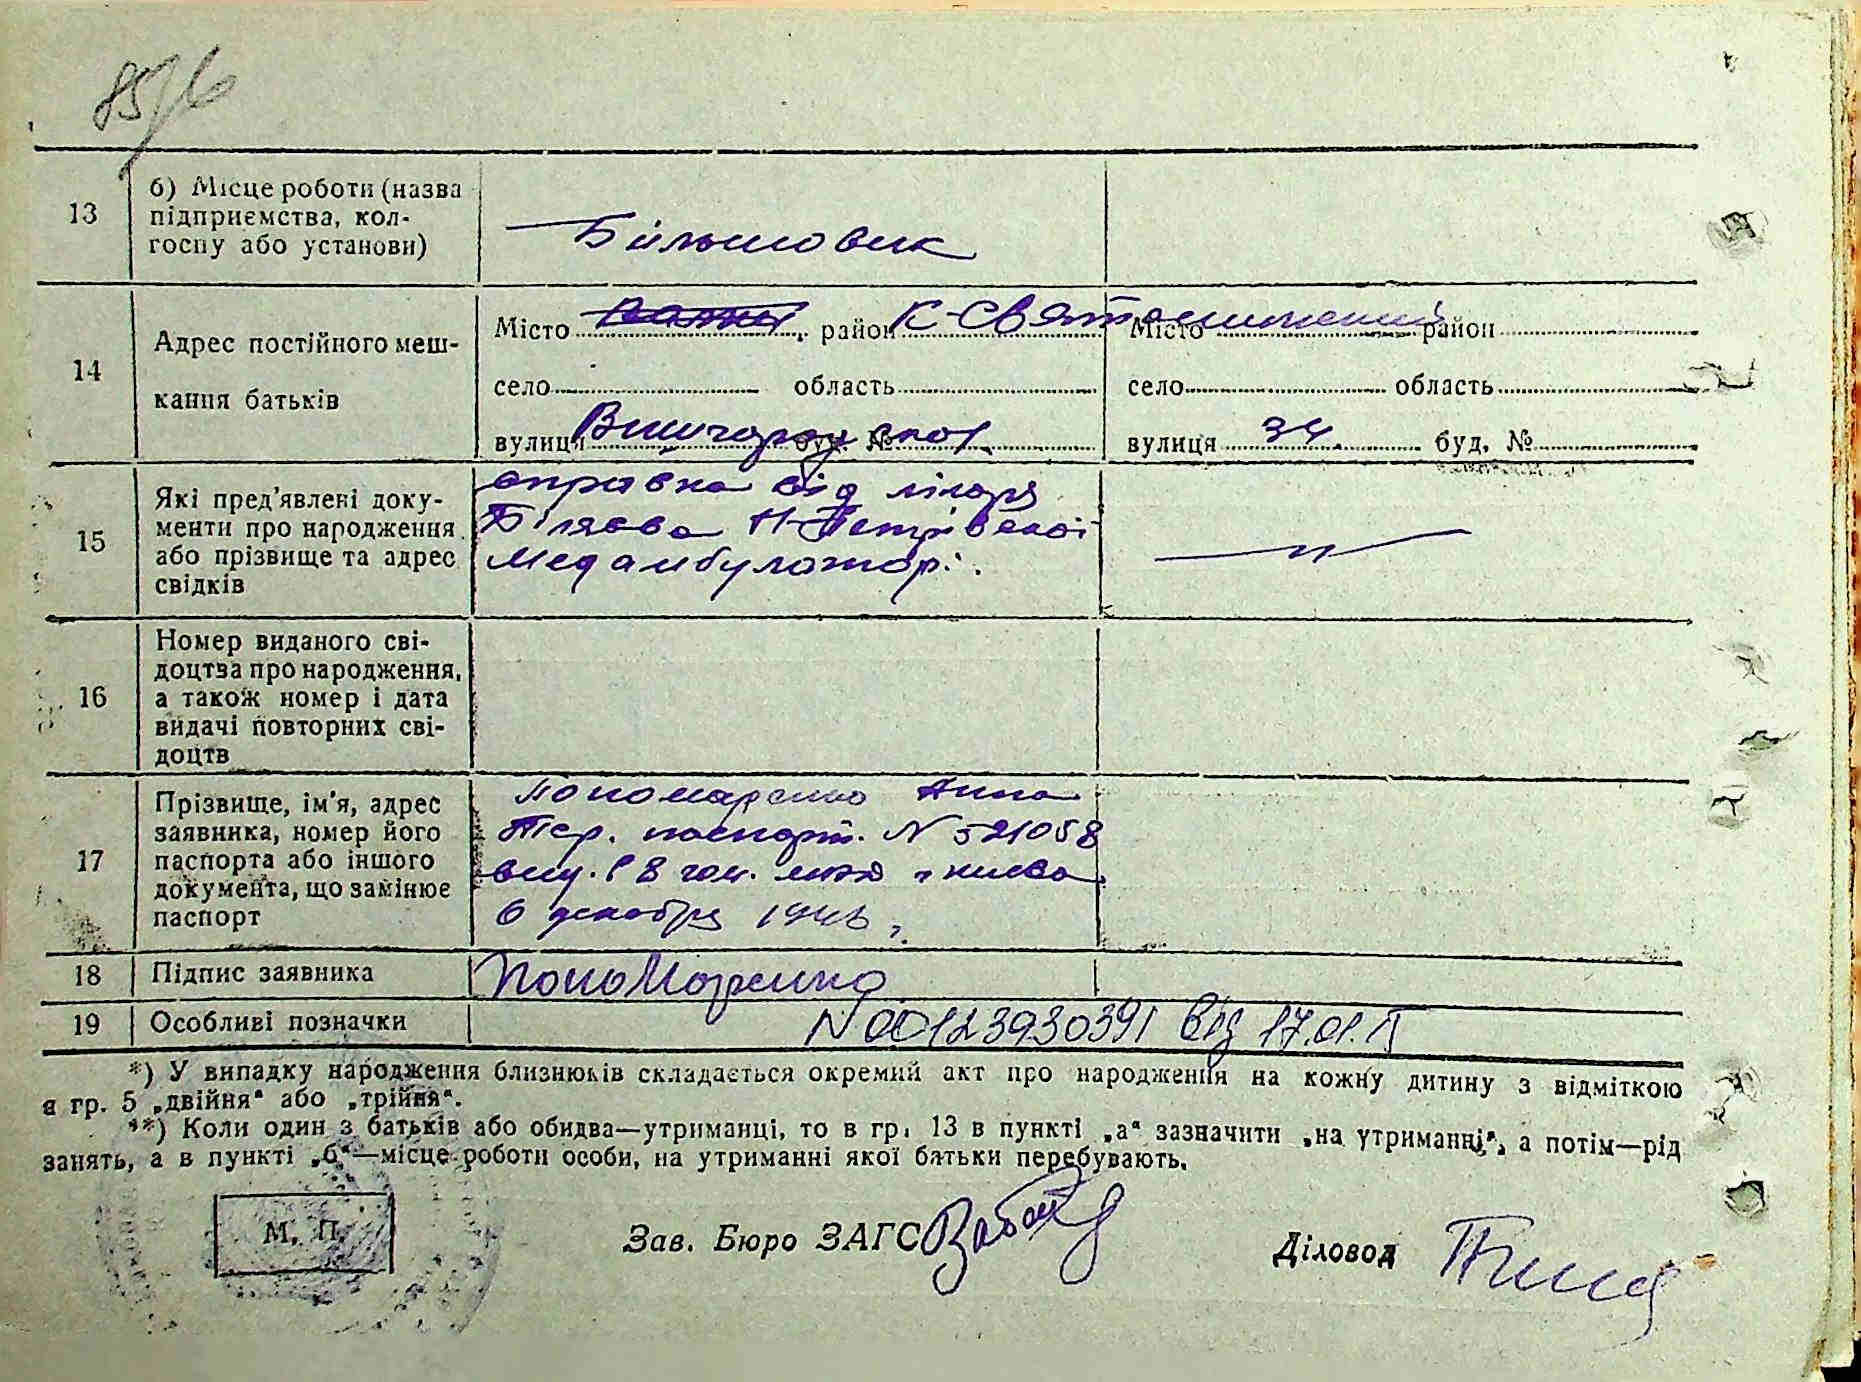 85/6
13
б) Місце роботи (назва
підприємства, кол-
госпу або установи)
Більшовик
14
Адрес постійного меш-
кання батьків
Місто район К-Святошинський
село область
вулиця Вишгородська буд. №
Місто район
село область
вулиця 34 буд. №
15
Які пред'явлені доку-
менти про народження
або прізвище та адрес
свідків
справка від лікаря
Біляєва Н-Петрівської
Медамбулаторі.
16
Номер виданого сві-
доцтва про народження,
а також номер і дата
видачі повторних сві-
доцтв
17
Прізвище, ім'я, адрес
заявника, номер його
паспорта або іншого
документа, що замінює
паспорт
Пономаренко Анна
паспорт. N 521058
18
Підпис заявника
Пономаренко
19
Особливі позначки
N 00123930391 від 17.01.
*) У випадку народження близнюків складається окремий акт про народження на кожну дитину з відміткою
в гр. 5 „двійня“ або „трійня“.
**) Коли один з батьків або обидва—утриманці, то в гр. 13 в пункті „а“ зазначити „на утриманні“, а потім—рід
занять, а в пункті „б“—місце роботи особи, на утриманні якої батьки перебувають.
М. П.
Зав. Бюро ЗАГС
Діловод